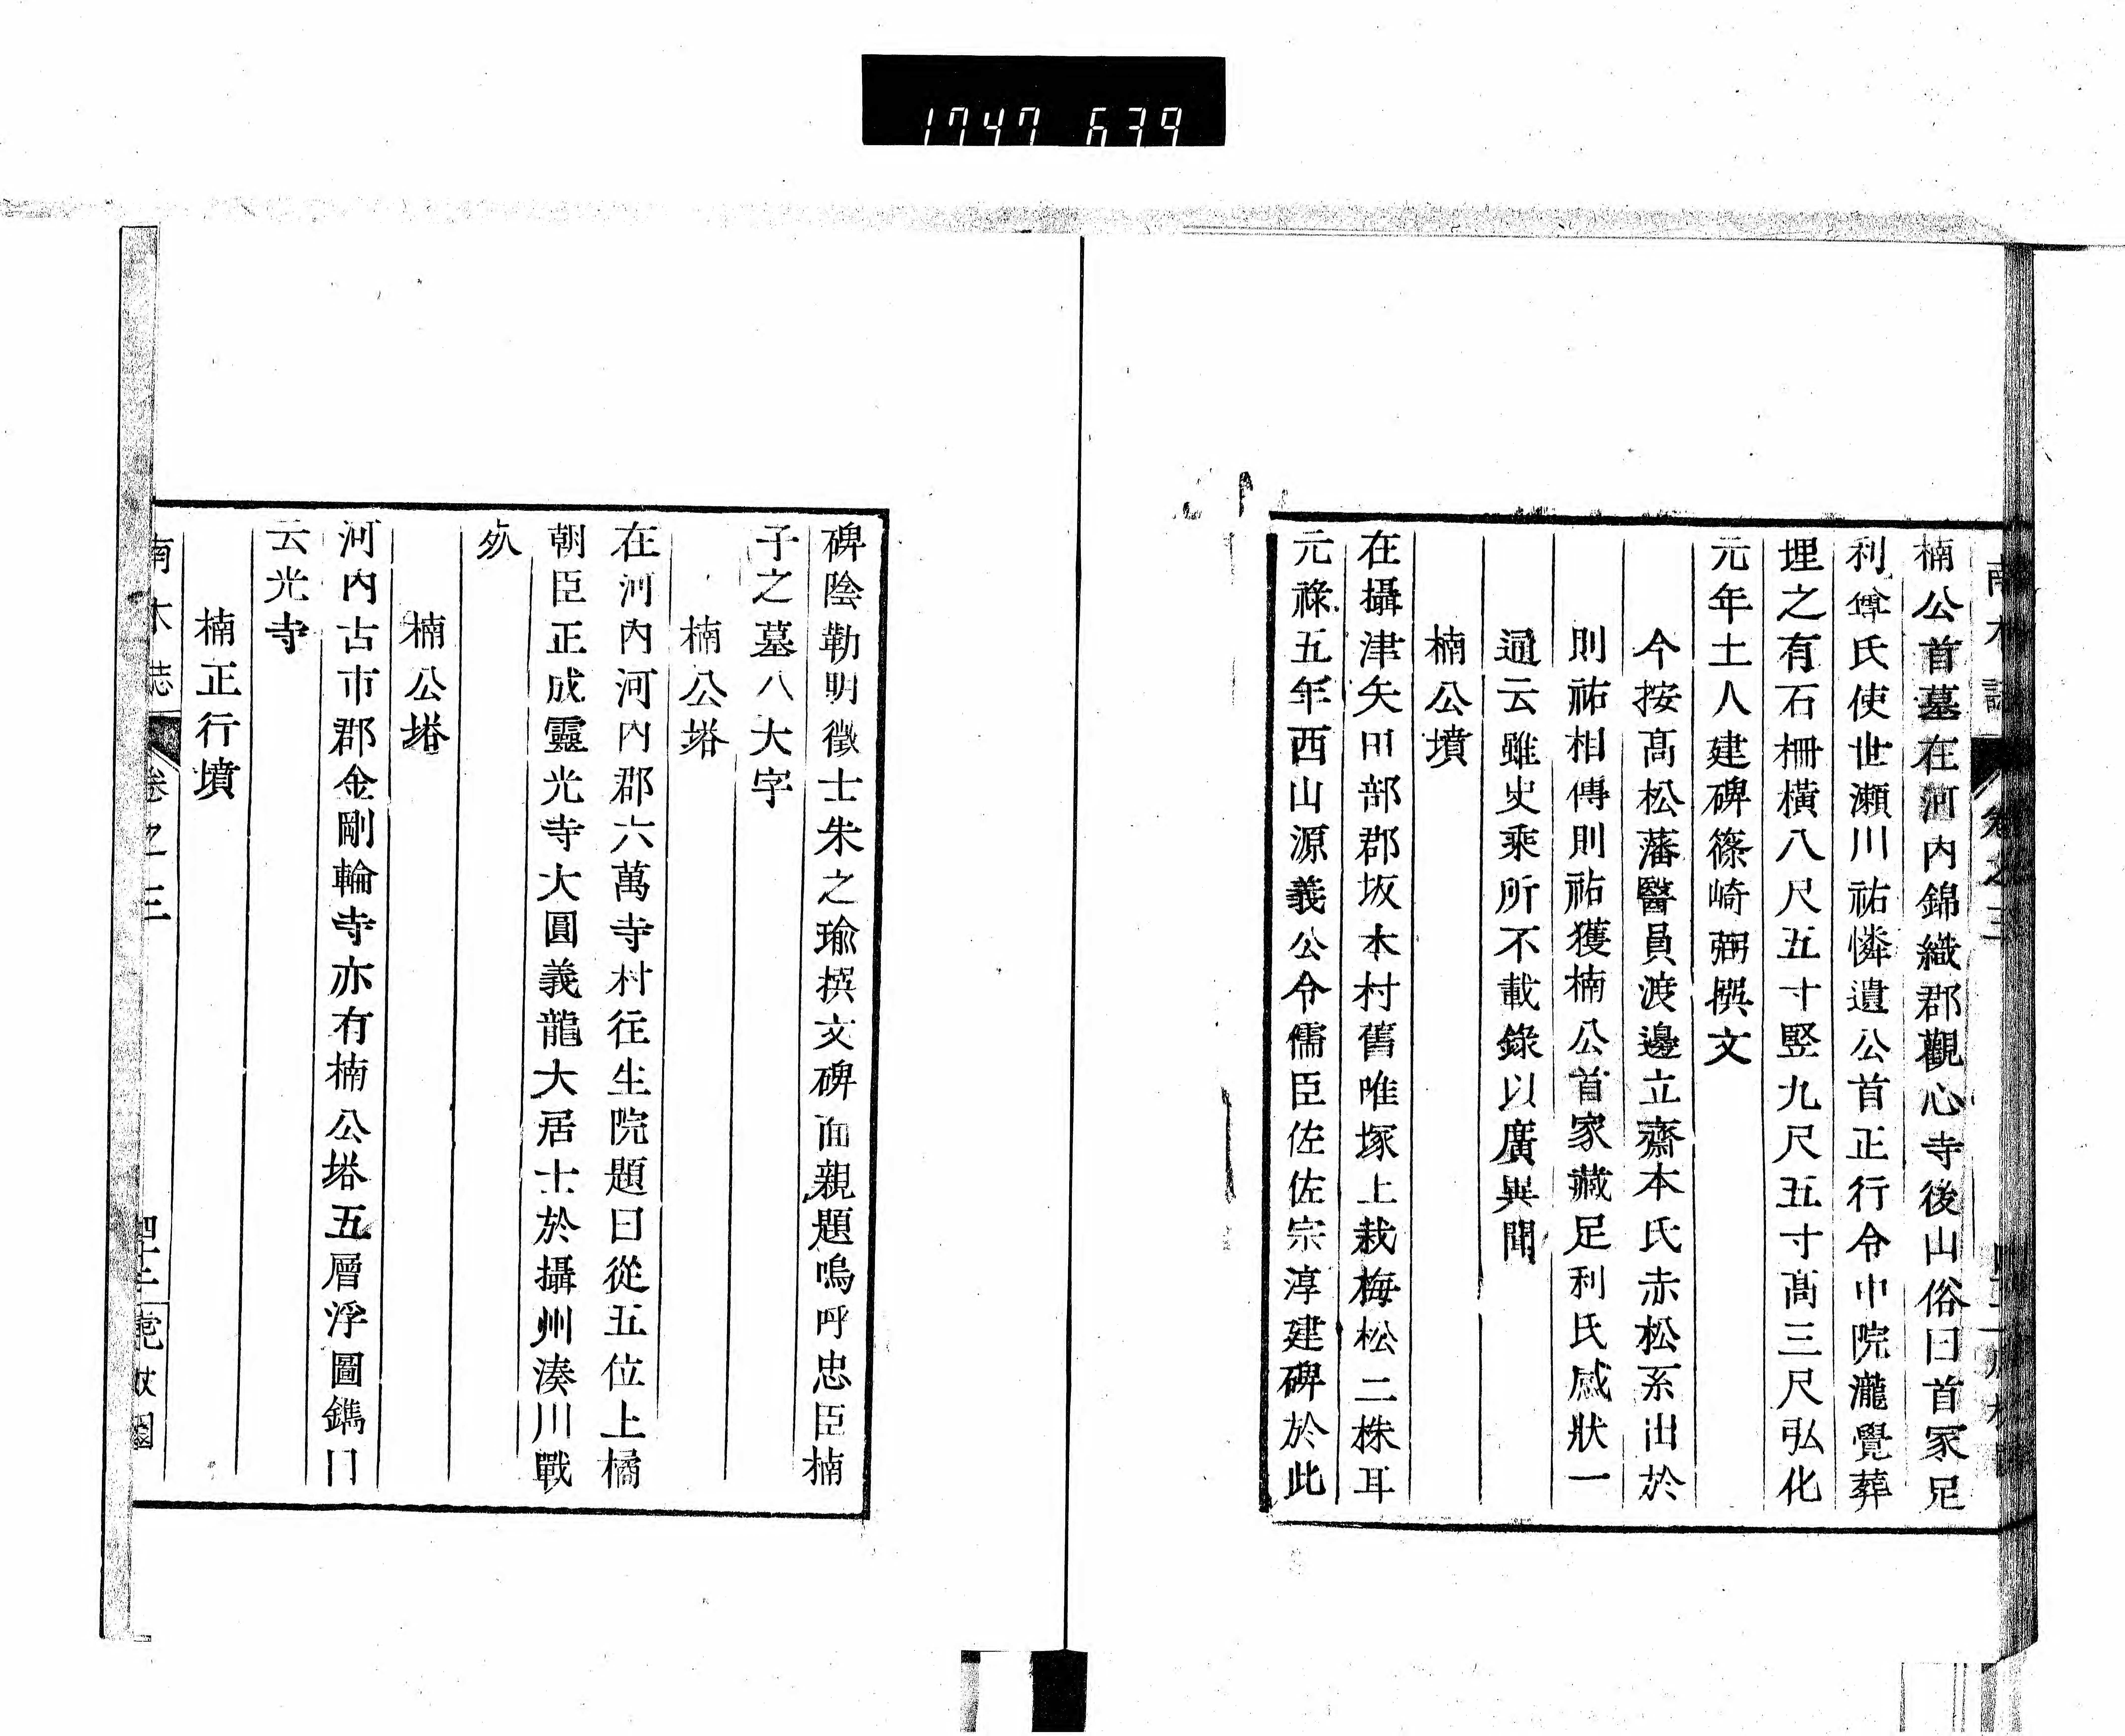 1747 639
南木誌 卷之三
楠公首墓在河內錦織郡觀心寺後山俗曰首冢足
利尊氏使世瀨川祐憐遺公首正行令中院瀧覺葬
埋之有石柵橫八尺五寸竪九尺五寸高三尺弘化
元年土人建碑篠崎弼撰文
今按髙松藩醫員渡邊立齋本氏赤松系出於
則祐相傳則祐獲楠公首家藏足利氏感狀一
通云雖史乘所不載錄以廣異聞
楠公墳
在攝津矢田部郡坂本村舊唯塚上栽梅松二株耳
元祿五年西山源義公令儒臣佐佐宗淳建碑於此
碑陰勒明徵士朱之瑜撰文碑面親題嗚呼忠臣楠
子之墓八大字
楠公塔
在河內河內郡六萬寺村往生院題曰從五位上橘
朝臣正成靈光寺大圓義龍大居士於攝州湊川戰
死
楠公塔
河內古市郡金剛輪寺亦有楠公塔五層浮圖鐫曰
云光寺
楠正行墳
南木誌 卷之三